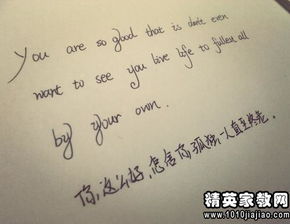 You are so good that is don't even
want to see you live life to fullest all
by your own.
你这么好,怎舍你孤独一人直至终老.
精英家教网
www.1010jiajiao.com